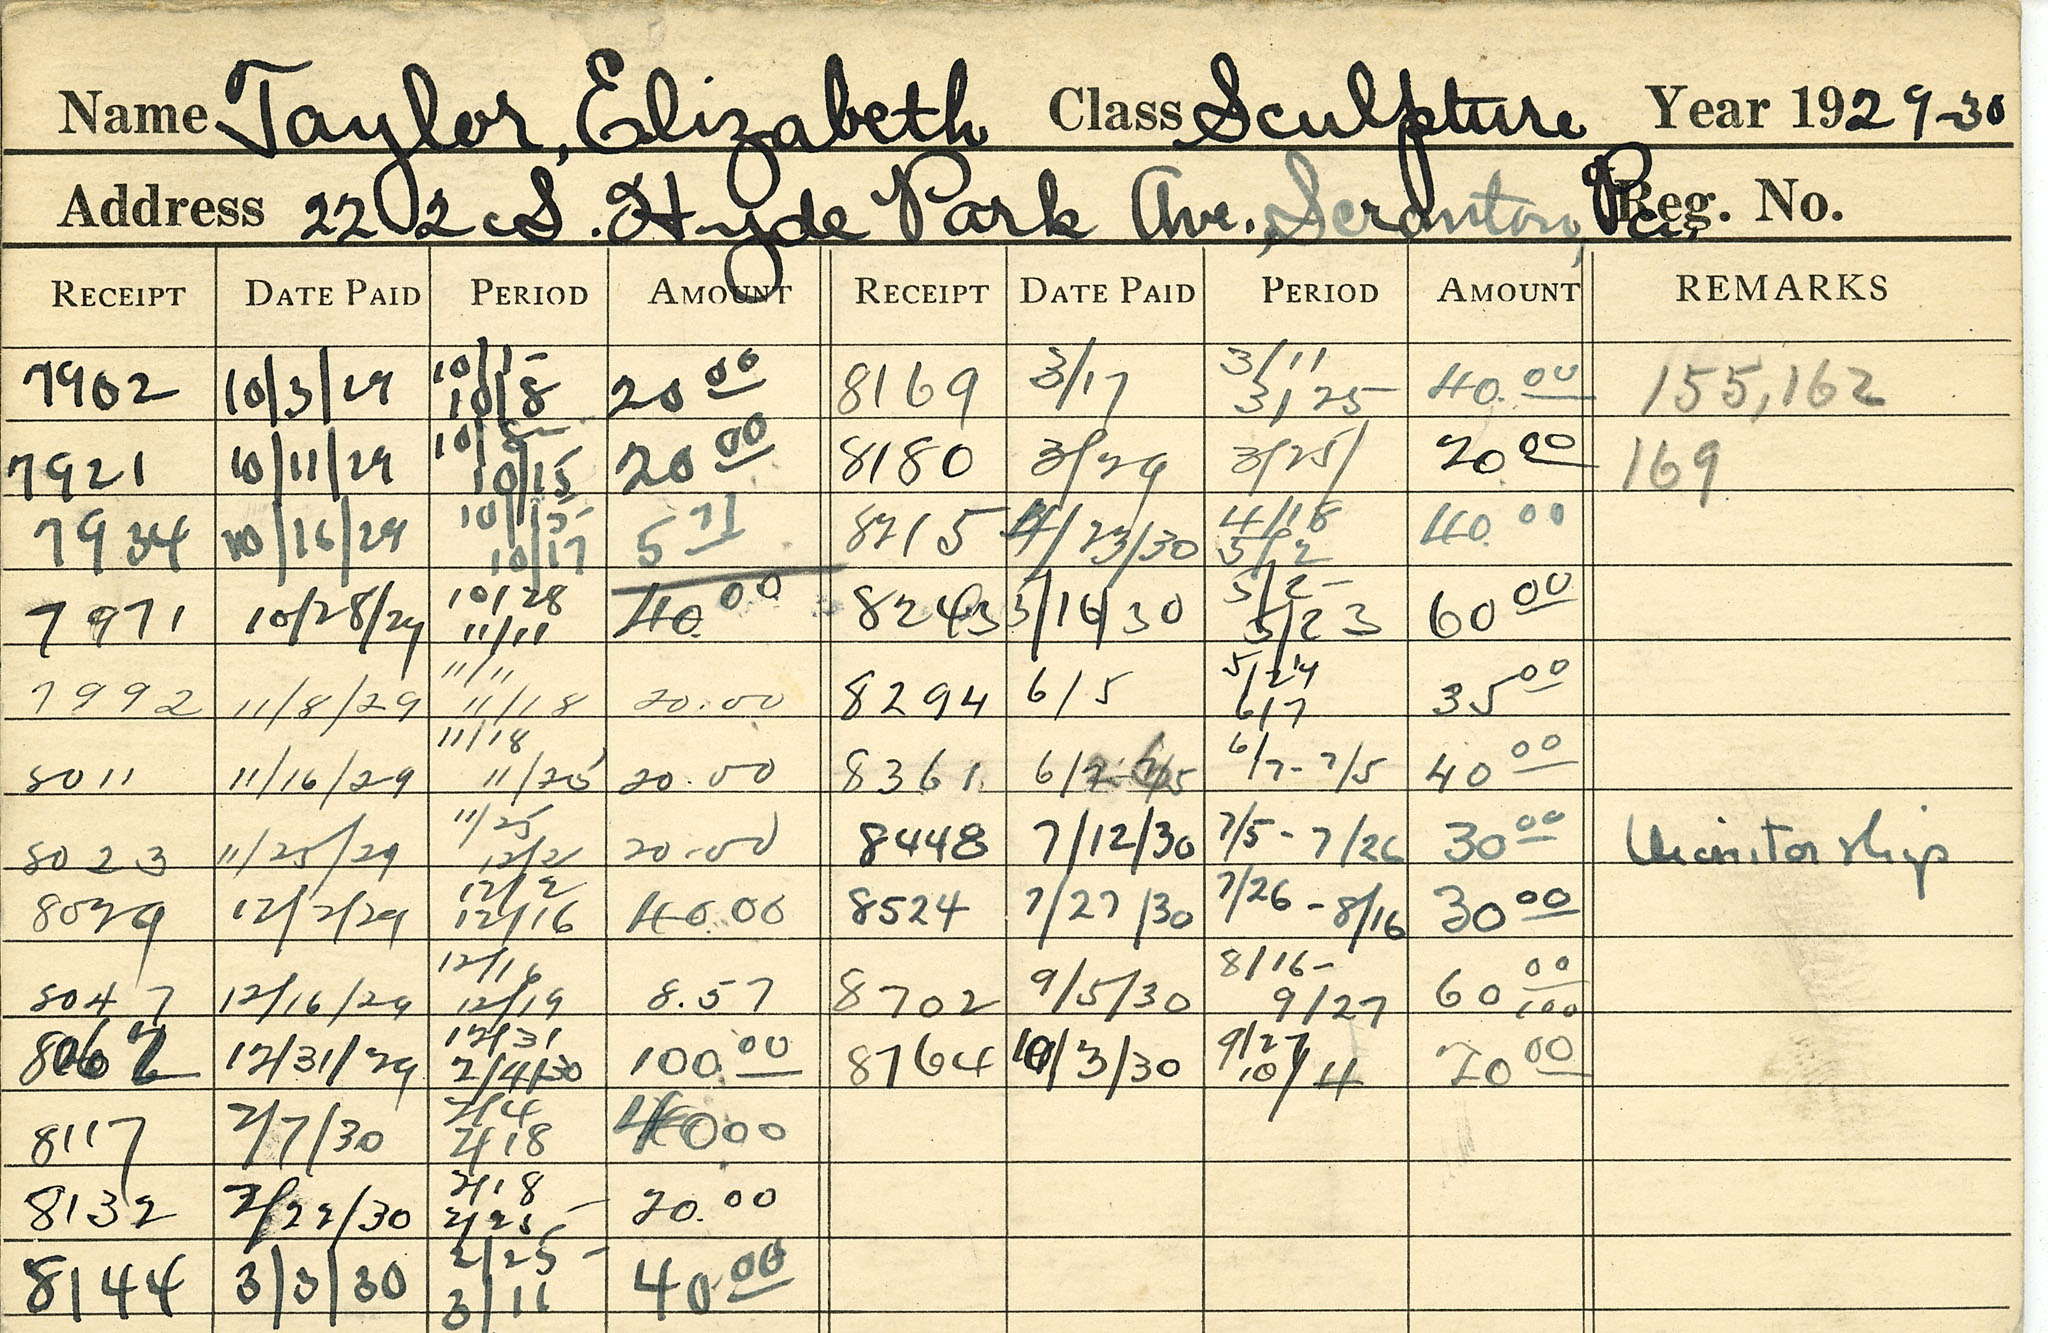 Name Taylor, Elizabeth Class Sculpture Year 1929-30
Address 222 S. Hyde Park Ave., Scranton, Pa. Reg. No.
RECEIPT DATE PAID PERIOD AMOUNT RECEIPT DATE PAID PERIOD AMOUNT REMARKS
7902 10/3/29 10/1- 10/8 20 00 8169 3/17 3/11 3/25 40.00 155,162
7921 10/11/29 10/8- 10/15 20 00 8180 3/29 3/25/ 20 00 169
7934 10/16/29 10/15- 10/17 5 71 8215 4/23/30 4/18 5/2 40.00
7971 10/28/29 10/28 11/11 40.00 8243 5/16/30 5/2- 5/23 60 00
7992 11/8/29 11/11 11/18 20.00 8294 6/5 5/24 6/7 35 00
8011 11/16/29 11/18 11/25 20.00 8361 6/7-7/5 40 00
8023 11/25/29 11/25 12/2 20.00 8448 7/12/30 7/5-7/26 30 00 Monitorship
8029 12/2/29 12/2 12/16 40.00 8524 7/27/30 7/26-8/16 30 00
8047 12/16/29 12/16 12/19 8.57 8702 9/5/30 8/16- 9/27 60 00/100
8062 12/31/29 12/31 2/4/30 100.00 8764 10/3/30 9/27 10/4 20 00
8117 2/7/30 2/4 2/18 40 00
8132 2/22/30 2/18 2/25- 20.00
8144 3/3/30 2/25- 3/11 40 00